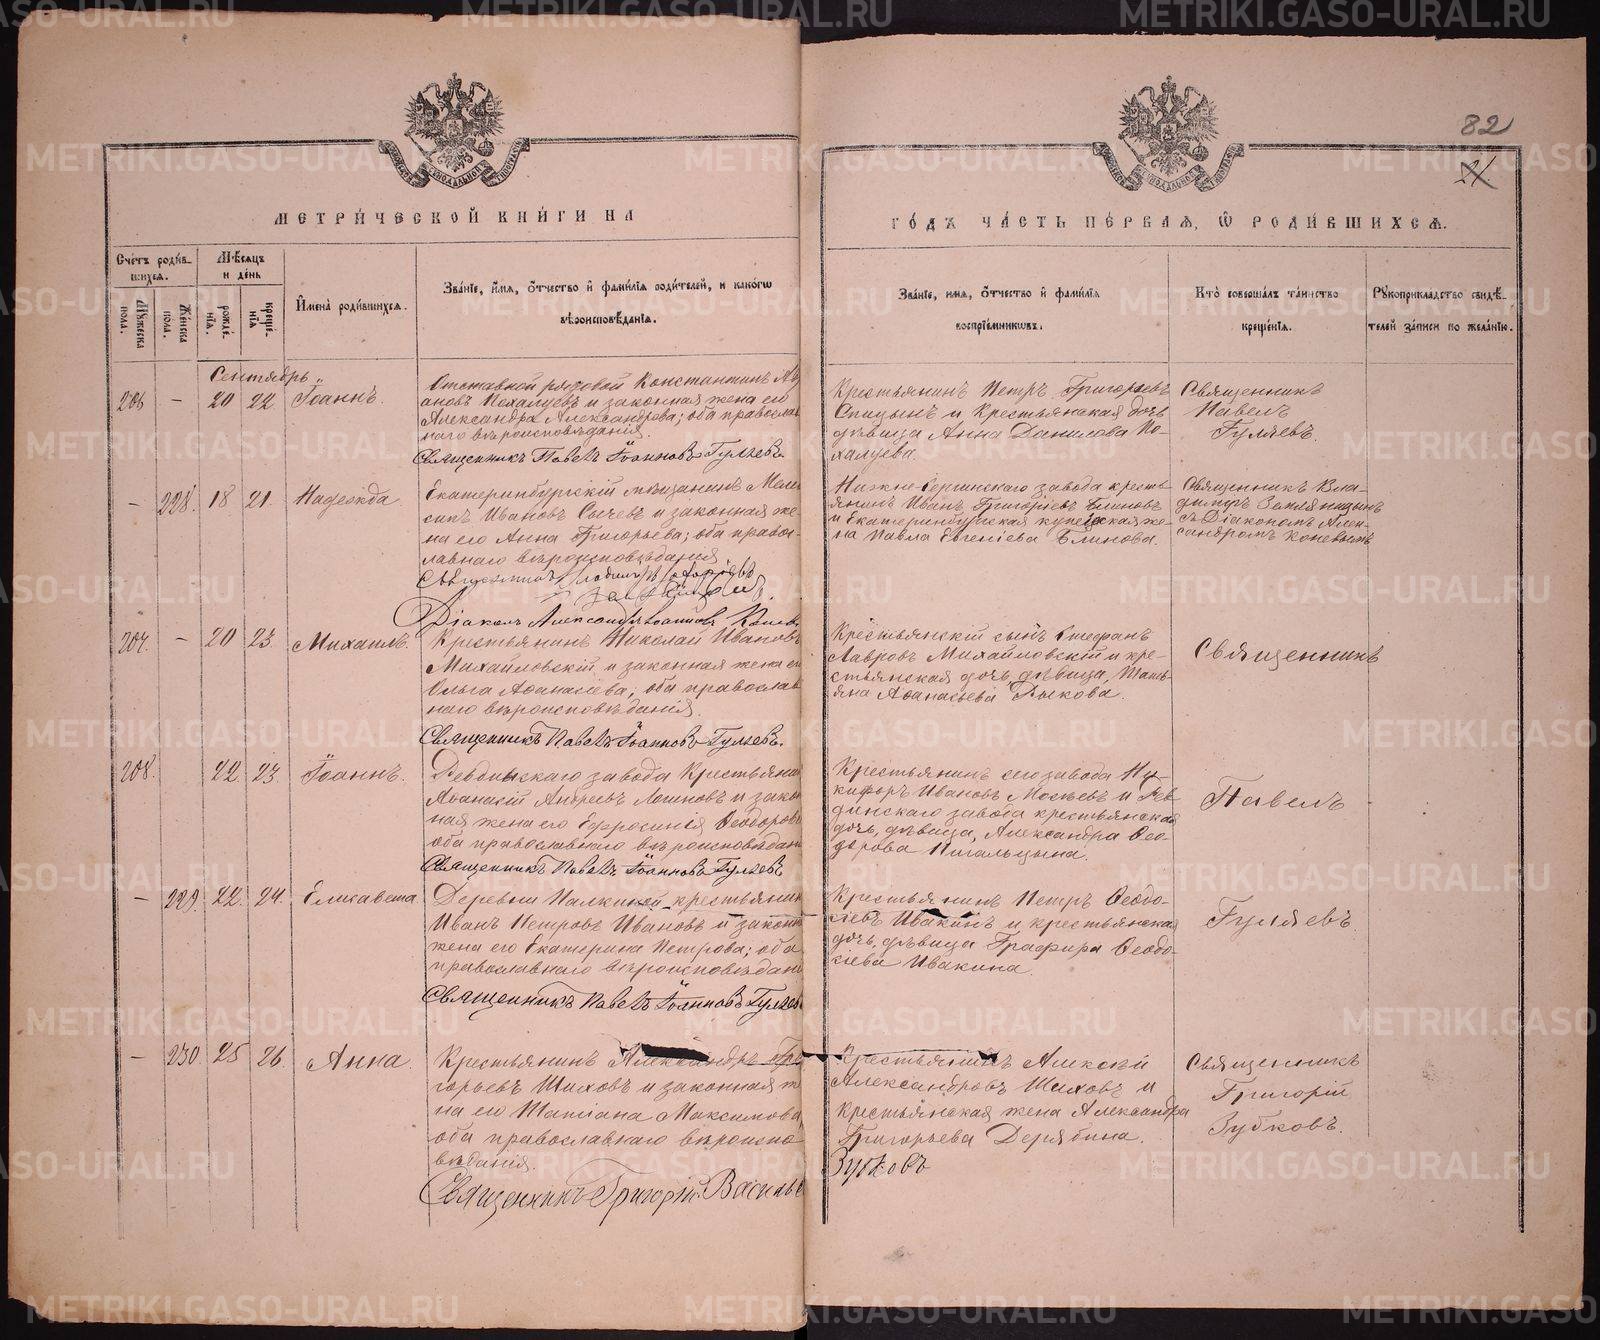 82
21.
МЕТРИ́ЧЕСКОЙ КНИ́ГИ НА
ГО́ДЪ ЧА́СТЬ ПЕ́РВАЯ, Ѡ РОДИ́ВШИХСЯ.
Сче́тъ роди́вшихся.
Мѣ́сяцъ и де́нь
Му́жеска пола.
Же́нска пола.
рожде́нїя.
креще́нїя
И҆мена̀ роди́вшихся.
Зва́нїе, и҆́мя, ѻ҆́тчество и҆ фами́лїя роди́телей, и како́гѡ
вѣроисповѣ́данїя.
Зва́нїе, имя, ѻ҆́тчество и҆ фами́лїя
воспрїе́мниковъ.
Кто̀ соверша́лъ та́инство
креще́нїя.
Рꙋкоприкла́дство свидѣ́телей за́писи по жела́нїю.
Сентябрь
206 – 20 22 Іоаннъ.
Отставной рядовой Константинъ
ановъ Похалуевъ и законная жена его
Александра Александрова; оба православ
наго вѣроисповѣданія.
Священникъ Павелъ Іоанновъ Гуляевъ.
Крестьянинъ Петръ Григорьевъ
Спицынъ и Крестьянская дочь
дѣвица Анна Данилова По-
халуева.
Священникъ
Павелъ
Гуляевъ.
– 228. 18 21. Надежда
Екатеринбургскій мѣщанинъ
Ивановъ Сычевъ и законная же-
на его Анна Григорьева; оба право-
славнаго вѣроисповѣданія
Священникъ Владиміръ
Діаконъ Александръ Іоанновъ Конев
Нижне-Сергинскаго завода кресть-
янинъ Иванъ Григоріевъ Блиновъ
и Екатеринбургская купеческая же-
на Павла Евгеніева Блинова.
Священникъ Вла-
диміръ Земляницынъ
съ Діакономъ Алек-
сандромъ Коневымъ
207. – 20 23. Михаилъ.
Крестьянинъ Николай Ивановъ
Михайловскій и законная жена ег
Ольга Аѳанасіева; оба православ
наго вѣроисповѣданія.
Священникъ Павелъ Іоанновъ Гуляевъ.
Крестьянскій сынъ Стефанъ
Лавровъ Михайловскій и кре-
стьянская дочь, дѣвица, Татья-
на Аѳанасьева Рыкова.
Священникъ
208. 22 23. Іоаннъ.
Ревдинскаго завода Крестьяни
Аѳанасій Андреевъ Логиновъ и закон
ная жена его Ефросинія Ѳеодорова
оба православнаго вѣроисповѣдан
Священникъ Павелъ Іоанновъ Гуляевъ
Крестьянинъ сего завода Ни-
кифоръ Ивановъ Мосѣевъ и Рев-
динскаго завода крестьянская
дочь, дѣвица, Александра Ѳео-
дорова Пигальцына.
Павелъ
– 229. 22. 24. Елисавета
Деревни Палкиной крестьянин
Иванъ Петровъ Ивановъ и законн
жена его Екатерина Петрова; оба
православнаго вѣроисповѣдан
Священникъ Павелъ Іоанновъ Гуляев
Крестьянинъ Петръ Ѳеодо-
сіевъ Ивакинъ и крестьянская
дочь, дѣвица Глафира Ѳеодо-
сіева Ивакина.
Гуляевъ.
– 230. 25 26. Анна.
Крестьянинъ Александръ Гри
горьевъ Шиховъ и законная ж
на его Татіана Максимова
оба православнаго вѣроиспо
вѣданія.
Священникъ Григорій Василье
Крестьянинъ Алексѣй
Александровъ Шиховъ и
Крестьянская жена Александра
Григорьева Дерябина.
Зубковъ
Священникъ
Григорій
Зубковъ.
METRIKI.GASO-URAL.RU